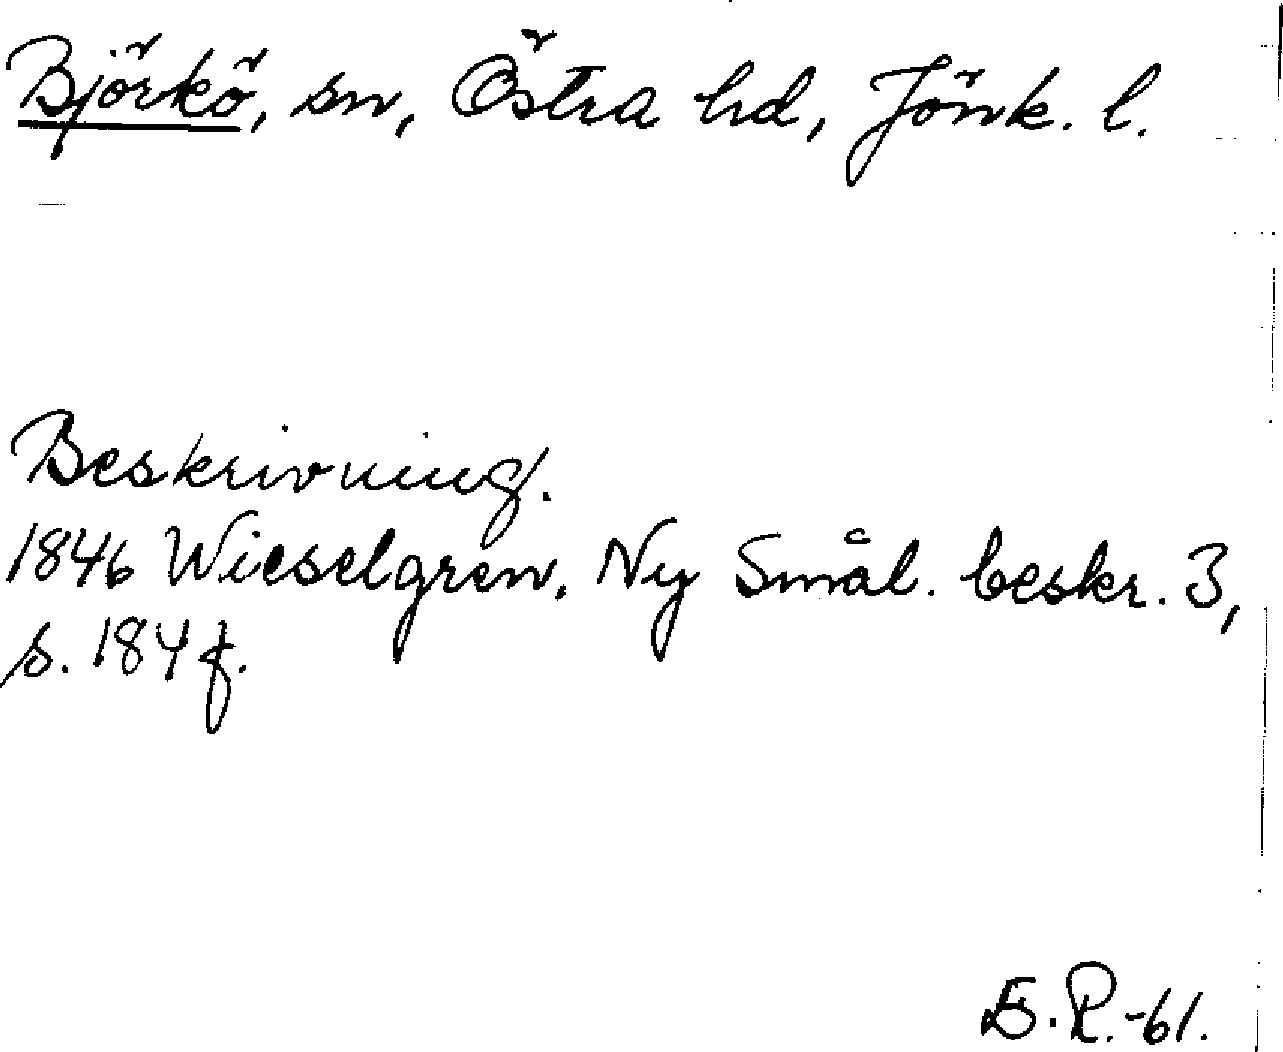 Björkö, sn, Östra hd, Jönk. l.
Beskrivning.
1846 Wieselgren, Ny Smål. beskr. 3,
s. 184 f.
E.R.-61.